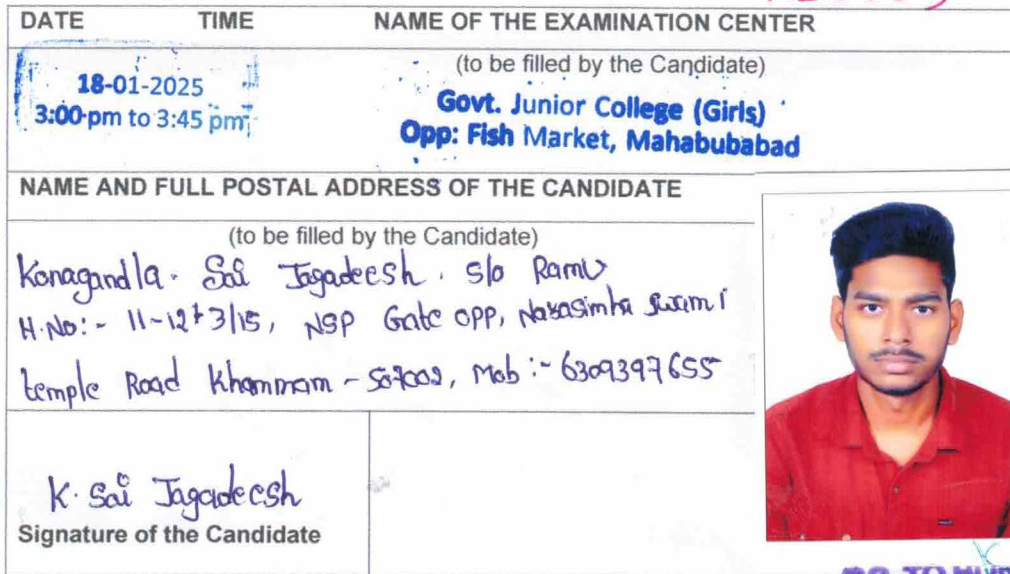 DATE TIME NAME OF THE EXAMINATION CENTER
(to be filled by the Candidate)
18-01-2025
3:00 pm to 3:45 pm
Govt. Junior College (Girls)
Opp: Fish Market, Mahabubabad
NAME AND FULL POSTAL ADDRESS OF THE CANDIDATE
(to be filled by the Candidate)
Konagandla. Sai Jagadeesh. S/o Ramu
H.No:- 11-12+3/15, NSP Gate opp, Narasimha swami
temple Road Khammam - 507002, Mob:- 6309397655
K. Sai Jagadeesh
Signature of the Candidate